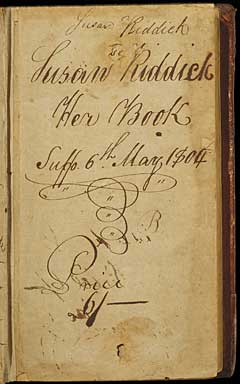 Susan Riddick
Susan Riddick
Her Book
Suffo. 6th May 1804
Price
6/—